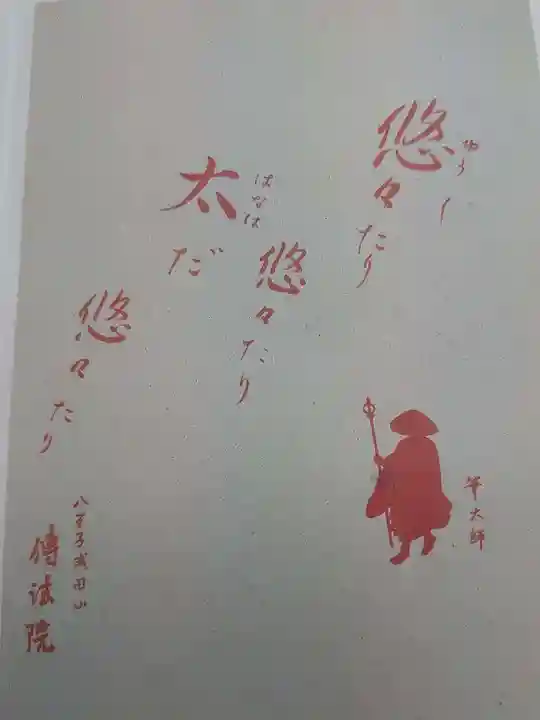 悠々たり
ゆう〱
悠々たり
太だ
はなは
悠々たり
筆大師
八王子成田山
傳法院